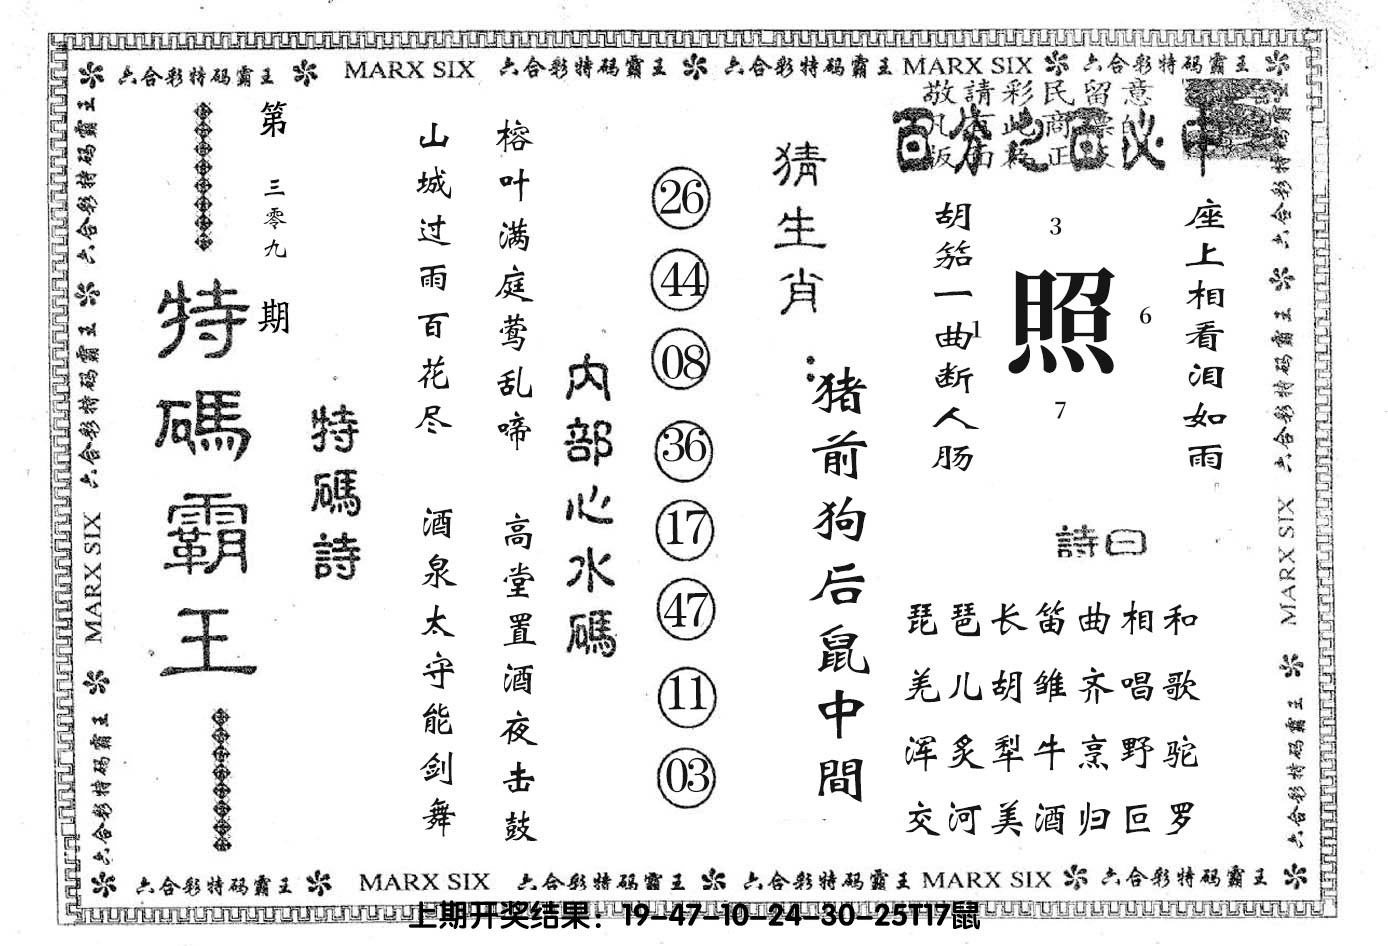 六合彩特码霸王 MARX SIX 六合彩特码霸王 六合彩特码霸王 MARX SIX 六合彩特码霸王
敬請彩民留意
百分之百必中
座上相看泪如雨
3
照
6
1
7
胡笳一曲断人肠
詩曰
琵琶长笛曲相和
羌儿胡雏齐唱歌
浑炙犁牛烹野驼
交河美酒归叵罗
猜生肖:
猪前狗后鼠中間
26
44
08
36
17
47
11
03
内部心水碼
榕叶满庭莺乱啼 高堂置酒夜击鼓
山城过雨百花尽 酒泉太守能剑舞
特碼詩
第三零九期
特碼霸王
六合彩特码霸王 六合彩特码霸王 MARX SIX 六合彩特码霸王
六合彩特码霸王 六合彩特码霸王 MARX SIX 六合彩特码霸王
六合彩特码霸王 MARX SIX 六合彩特码霸王 六合彩特码霸王 MARX SIX 六合彩特码霸王
上期开奖结果：19-47-10-24-30-25T17鼠